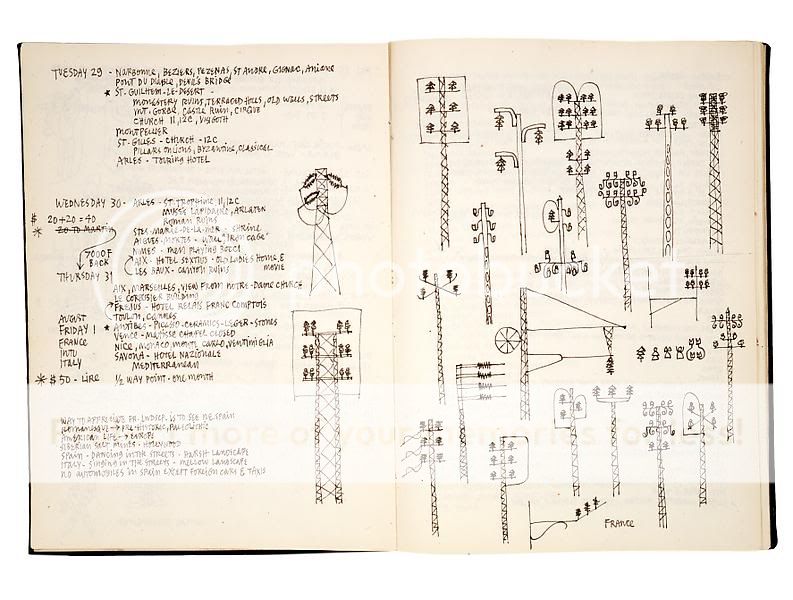 TUESDAY 29 - NARBONNE, BEZIERS, PEZENAS, ST ANDRE, GIGNAC, ANIANE
PONT DU DIABLE, DEVIL'S BRIDGE
* ST. GUILHEM-LE-DESERT -
MONESTERY RUINS, TERRACED HILLS, OLD WALLS, STREETS
MT. GORGE, CASTLE RUIN, CIRQUE
CHURCH 11, 12C, VISGOTH
MONTPELLIER
ST. GILLES - CHURCH - 12C
PILLARS ON LIONS, BYZANTINE, CLASSICAL
ARLES - TOURING HOTEL
WEDNESDAY 30 - ARLES - ST. TROPHIME 11, 12C
MUSÉES LAPIDAIRE, ARLATEN
ROMAN RUINS
$ 20+20 = 40
* 20 TO MARTIN
STES-MARIE-DE-LA-MER - SHRINE
AIGUES-MORTES - WALL "IRON CAGE"
NIMES - MEN PLAYING BOCCI
7000F BACK
AIX - HOTEL SEXTIUS - OLD LADIES HOME, &
LES BAUX - CANYON RUINS MOVIE
THURSDAY 31
AIX, MARSEILLES, VIEW FROM NOTRE-DAME CHURCH
LE CORBUSIER BUILDING
FREJUS - HOTEL RELAIS FRANC COMPTOIS
AUGUST TOULON, CANNES
FRIDAY 1 * ANTIBES - PICASSO - CERAMICS - LEGER - STONES
FRANCE VENCE - MATISSE CHAPEL CLOSED
INTO NICE, MONACO, MONTE CARLO, VENTIMIGLIA
ITALY SAVONA - HOTEL NAZIONALE
MEDITERRANEAN
* $50 - LIRE 1/2 WAY POINT - ONE MONTH
WAY TO APPRECIATE FR. LNDSCP. IS TO SEE NE SPAIN
→ PRE HISTORIC, PALEOLITHIC
AMERICAN LIFE → EUROPE
SIBERIAN SALT MINES - HOLLYWOOD
SPAIN - DANCING IN THE STREETS - HARSH LANDSCAPE
ITALY - SINGING IN THE STREETS - MELLOW LANDSCAPE
NO AUTOMOBILES IN SPAIN EXCEPT FOREIGN CARS & TAXIS
FRANCE
photobucket
more of your memories for less!